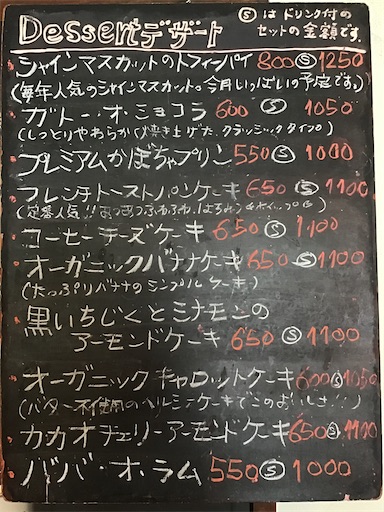 Dessertデザート
Ⓢはドリンク付の
セットの金額です。
シャインマスカットのトフィーパイ 800 Ⓢ 1250
(毎年人気のシャインマスカット。今月いっぱいの予定です。)
ガトー・オ・ショコラ 600 Ⓢ 1050
(しっとりやわらかく焼き上げた、クラッシックタイプ)
プレミアムかぼちゃプリン 550 Ⓢ 1000
フレンチトーストパンケーキ 650 Ⓢ 1100
(定番人気!!あつあつふわふわ、
コーヒーチーズケーキ 650 Ⓢ 1100
オーガニックバナナケーキ 650 Ⓢ 1100
(たっぷりバナナのシンプルケーキ)
黒いちじくとシナモンの
アーモンドケーキ 650 Ⓢ 1100
オーガニックキャロットケーキ 600 Ⓢ 1050
(バター不使用のヘルシーケーキでこのおいしさ!!)
カカオチェリーアーモンドケーキ 650 Ⓢ 1100
ババ・オ・ラム 550 Ⓢ 1000